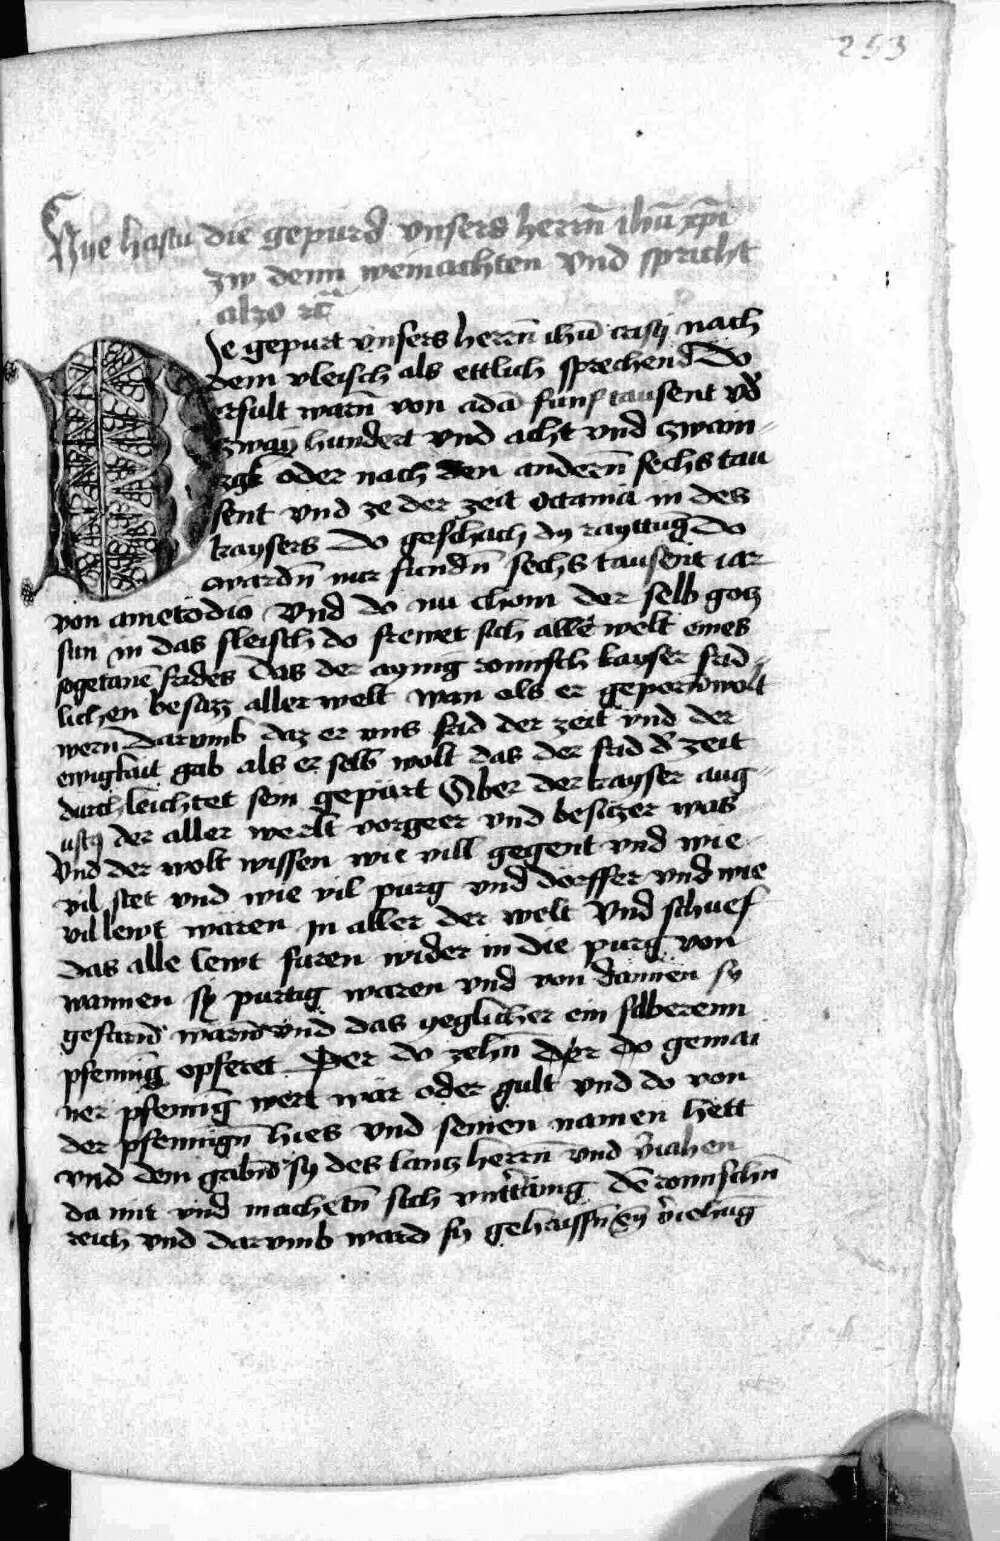 253
Hye hastu die gepurd vnsers herrn̄ ihū xp̄i
zw denn weinachten vnd spricht
also ꝛc̄
Die gepurt vnsers herrn̄ ihū cristj nach
dem vleisch als ettlich sprechend Do
erfult warn̄ von adā funf tausent vd̄
zway hundert vnd acht vnd zwain-
zgk oder nach den andern̄ sechs tau
sent vnd ze der zeit Octauia in des
kaysers do geschach dy rayttūg do
wardn̄ nur fundn̄ sechs tausent iar
von ametodio vnd do nu chom der selb gotz
sun in das fleisch do frewet sich alle welt eines
sogetanē frides das der aynig romisch kayser frid-
lichen besazz aller welt wan als er geporn̄ wolt
wern̄ darumb daz er vns frid der zeit vnd der
ewigkait gab als er selb wolt das der frid d̄ zeit
durch leichtet sein gepürt Aber der kayser aug-
ustj der aller werlt vorgeer vnd besiczer was
vnd der wolt wissen wie vill gegent vnd wie
vil stet vnd wie vil purg vnd dörffer vnd wie
vil lewt wären In aller der welt vnd schuef
das alle lewt furen wider in die purg von
wannen sy purtig waren vnd von dannen sy
gefarn̄ warn̄ vnd das yeglicher ein silberenn
pfennig opferet Der do zehn̄ der do gemai
ner pfennig wert wär oder gult vnd do von
der pfennign̄ hies vnd seinen namen hett
vnd den gabn̄ sy des lantz herrn̄ vnd v̄iahen
da mit vnd machetn̄ sich vnt̄tänig dē romischn̄
reich vnd darumb ward sy gehaissn̄ ein v̄iehūg